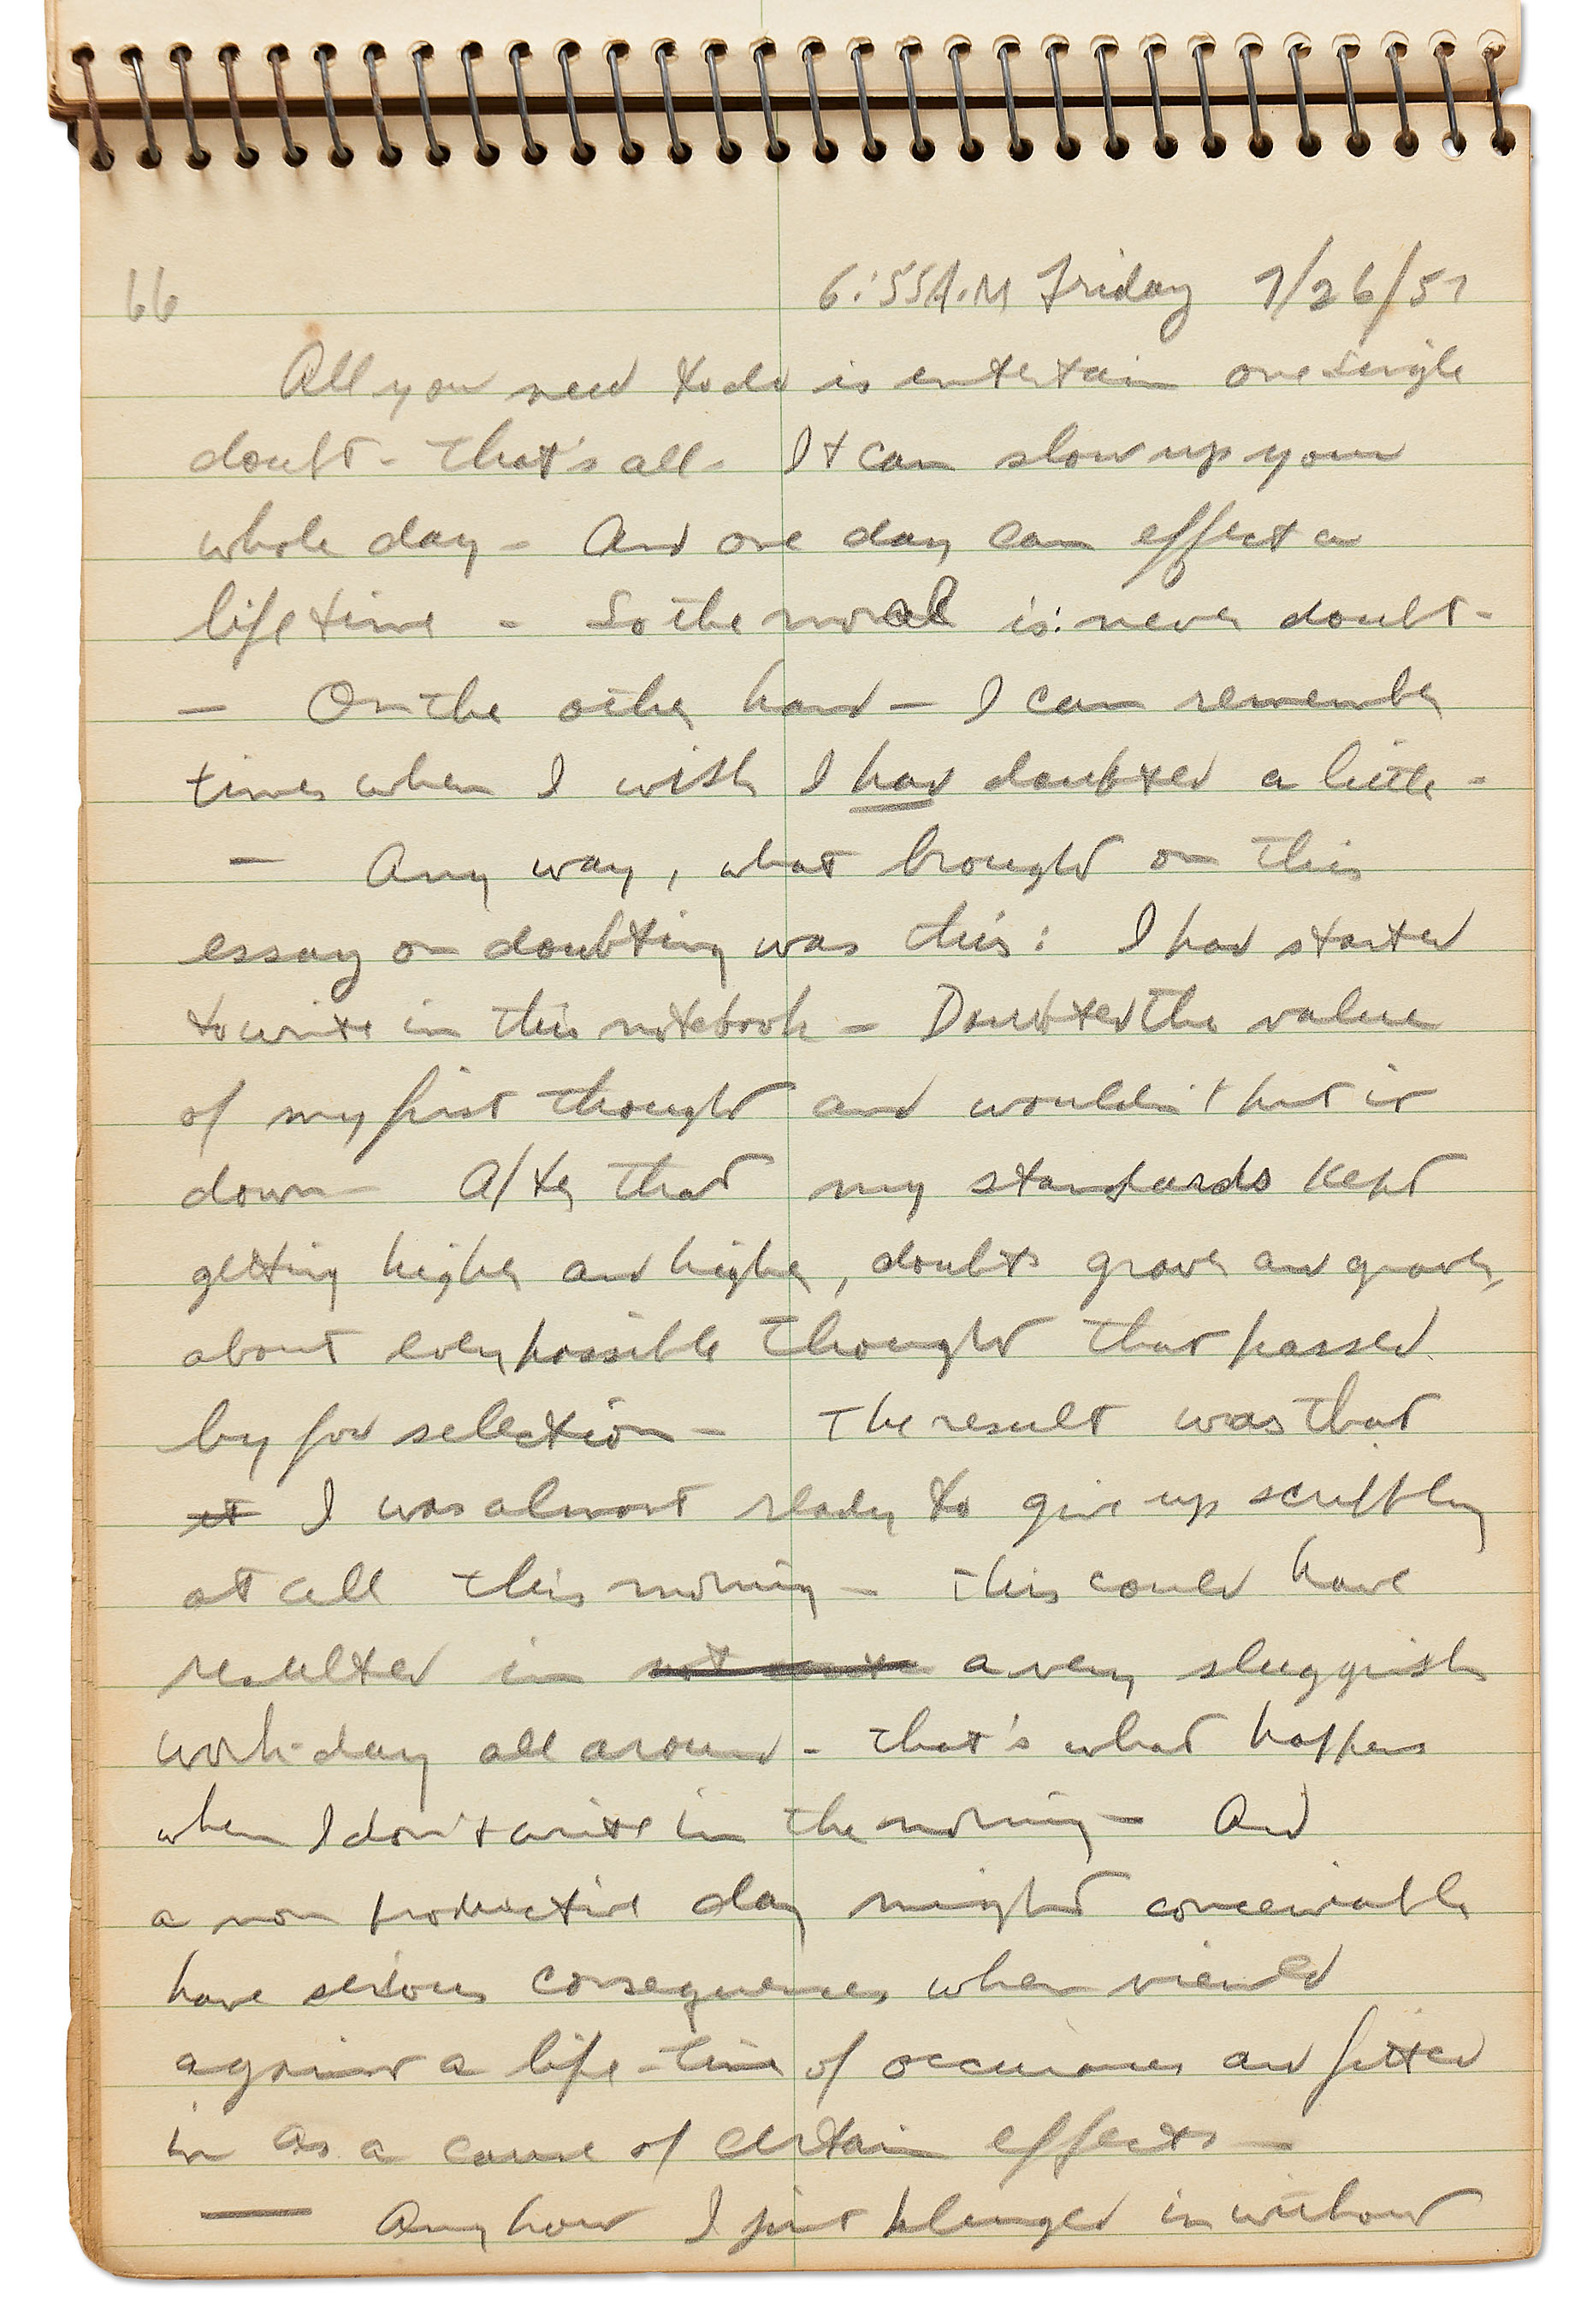 66
6:55 A.M Friday 7/26/57
All you need to do is entertain one single
doubt - that's all - It can slow up your
whole day - And one day can effect a
life time - So the moral is: never doubt -
— On the other hand — I can remember
times when I wish I had doubted a little -
— Any way, what brought on this
essay on doubting was this: I had started
to write in this notebook - Doubted the value
of my first thought and wouldn't put it
down After that my standards kept
getting higher and higher, doubts grower and grower,
about every possible thought that passed
by for selection - The result was that
it I was almost ready to give up scribbling
at all this morning - This could have
resulted in not write a very sluggish
work-day all around - that's what happens
when I don't write in the morning - And
a non productive day might conceivably
have serious consequences when viewed
against a life-time of occurances and fitted
in as a cause of certain effects -
— Anyhow I just plunged in without